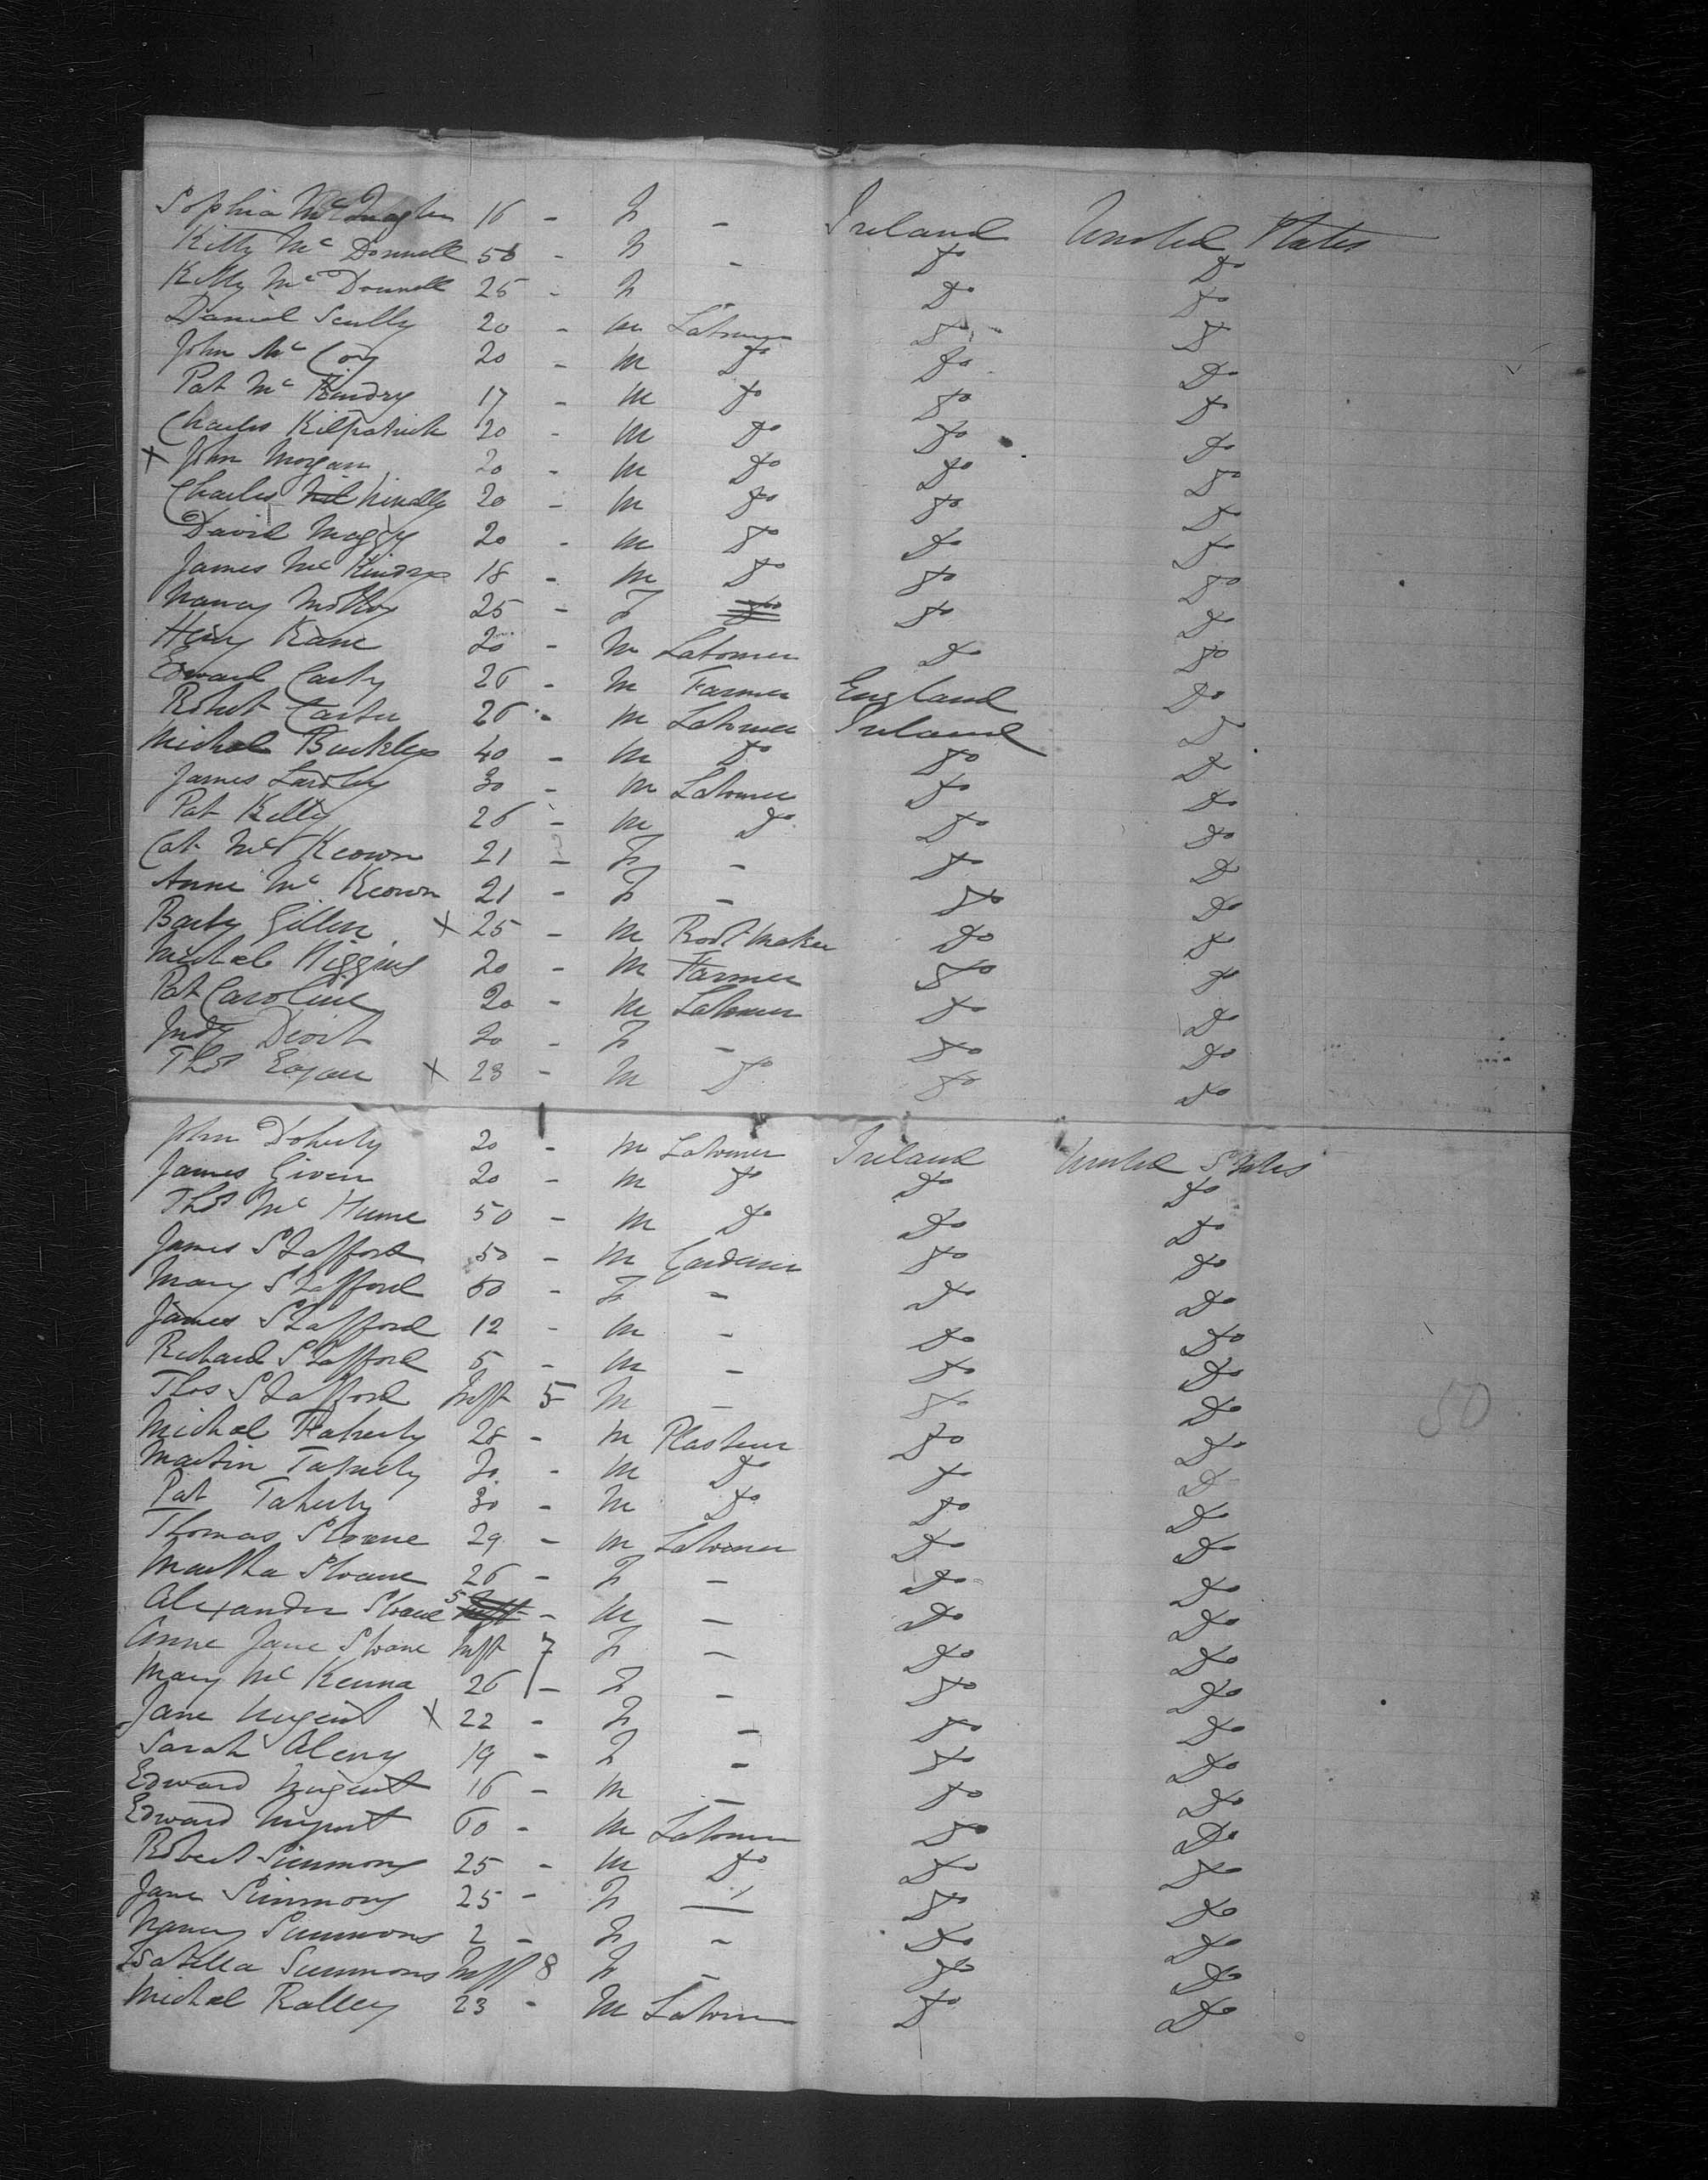 Sophia Mc 16 - F - Ireland United States
Kitty Mc Donnell 50 - F - Do Do
Kitty Mc Donnell 25 - F - Do Do
Daniel Scully 20 - M Labourer Do Do
John Mc Coy 20 - M Do Do Do
Pat Mc Kindry 17 - M Do Do Do
Charles Kilpatrick 20 - M Do Do Do
X John Morgan 20 - M Do Do Do
Charles 20 - M Do Do Do
David 20 - M Do Do Do
James Mc Kindry 18 - M Do Do Do
Nancy 25 - F Do Do Do
Henry Kane 20 - M Labourer Do Do
Edward Carty 26 - M Farmer England Do
Robert Carter 26 - M Labourer Ireland Do
Michael Buckley 40 - M Do Do Do
James 30 - M Labourer Do Do
Pat Kelly 26 - M Do Do Do
Cat Mc Keown 21 - F - Do Do
Anne Mc Keown 21 - F - Do Do
Barty Gillen X 25 - M Boot Maker Do Do
Michael Higgins 20 - M Farmer Do Do
Pat Caroline 20 - M Labourer Do Do
Judy 20 - F - Do Do
Thos Eagan X 23 - M Do Do Do
John Doherty 20 - M Labourer Ireland United States
James Given 20 - M Do Do Do
Thos Mc Hume 50 - M Do Do Do
James Stafford 50 - M Gardener Do Do
Mary Stafford 50 - F - Do Do
James Stafford 12 - M - Do Do
Richard Stafford 5 - M - Do Do
Thos Stafford Inft 5 M - Do Do
Michael Flaherty 28 - M Plasterer Do Do
Martin Taherty - M Do Do Do
Pat Taherty 30 - M Do Do Do
Thomas Sloane 29 - M Labourer Do Do
Martha Sloane 26 - F - Do Do
Alexander Sloane 5 - M - Do Do
Anne Jane Sloane Inft 7 F - Do Do
Mary Mc Kenna 26 - F - Do Do
Jane Nugent X 22 - F - Do Do
Sarah 19 - F - Do Do
Edward Nugent 16 - M - Do Do
Edward Nugent 60 - M Labourer Do Do
Robert Simmons 25 - M Do Do Do
Jane Simmons 25 - F - Do Do
Nancy Simmons 2 - F - Do Do
Isabella Simmons Inft 8 F - Do Do
Michael Kelley 23 - M Labourer Do Do
50